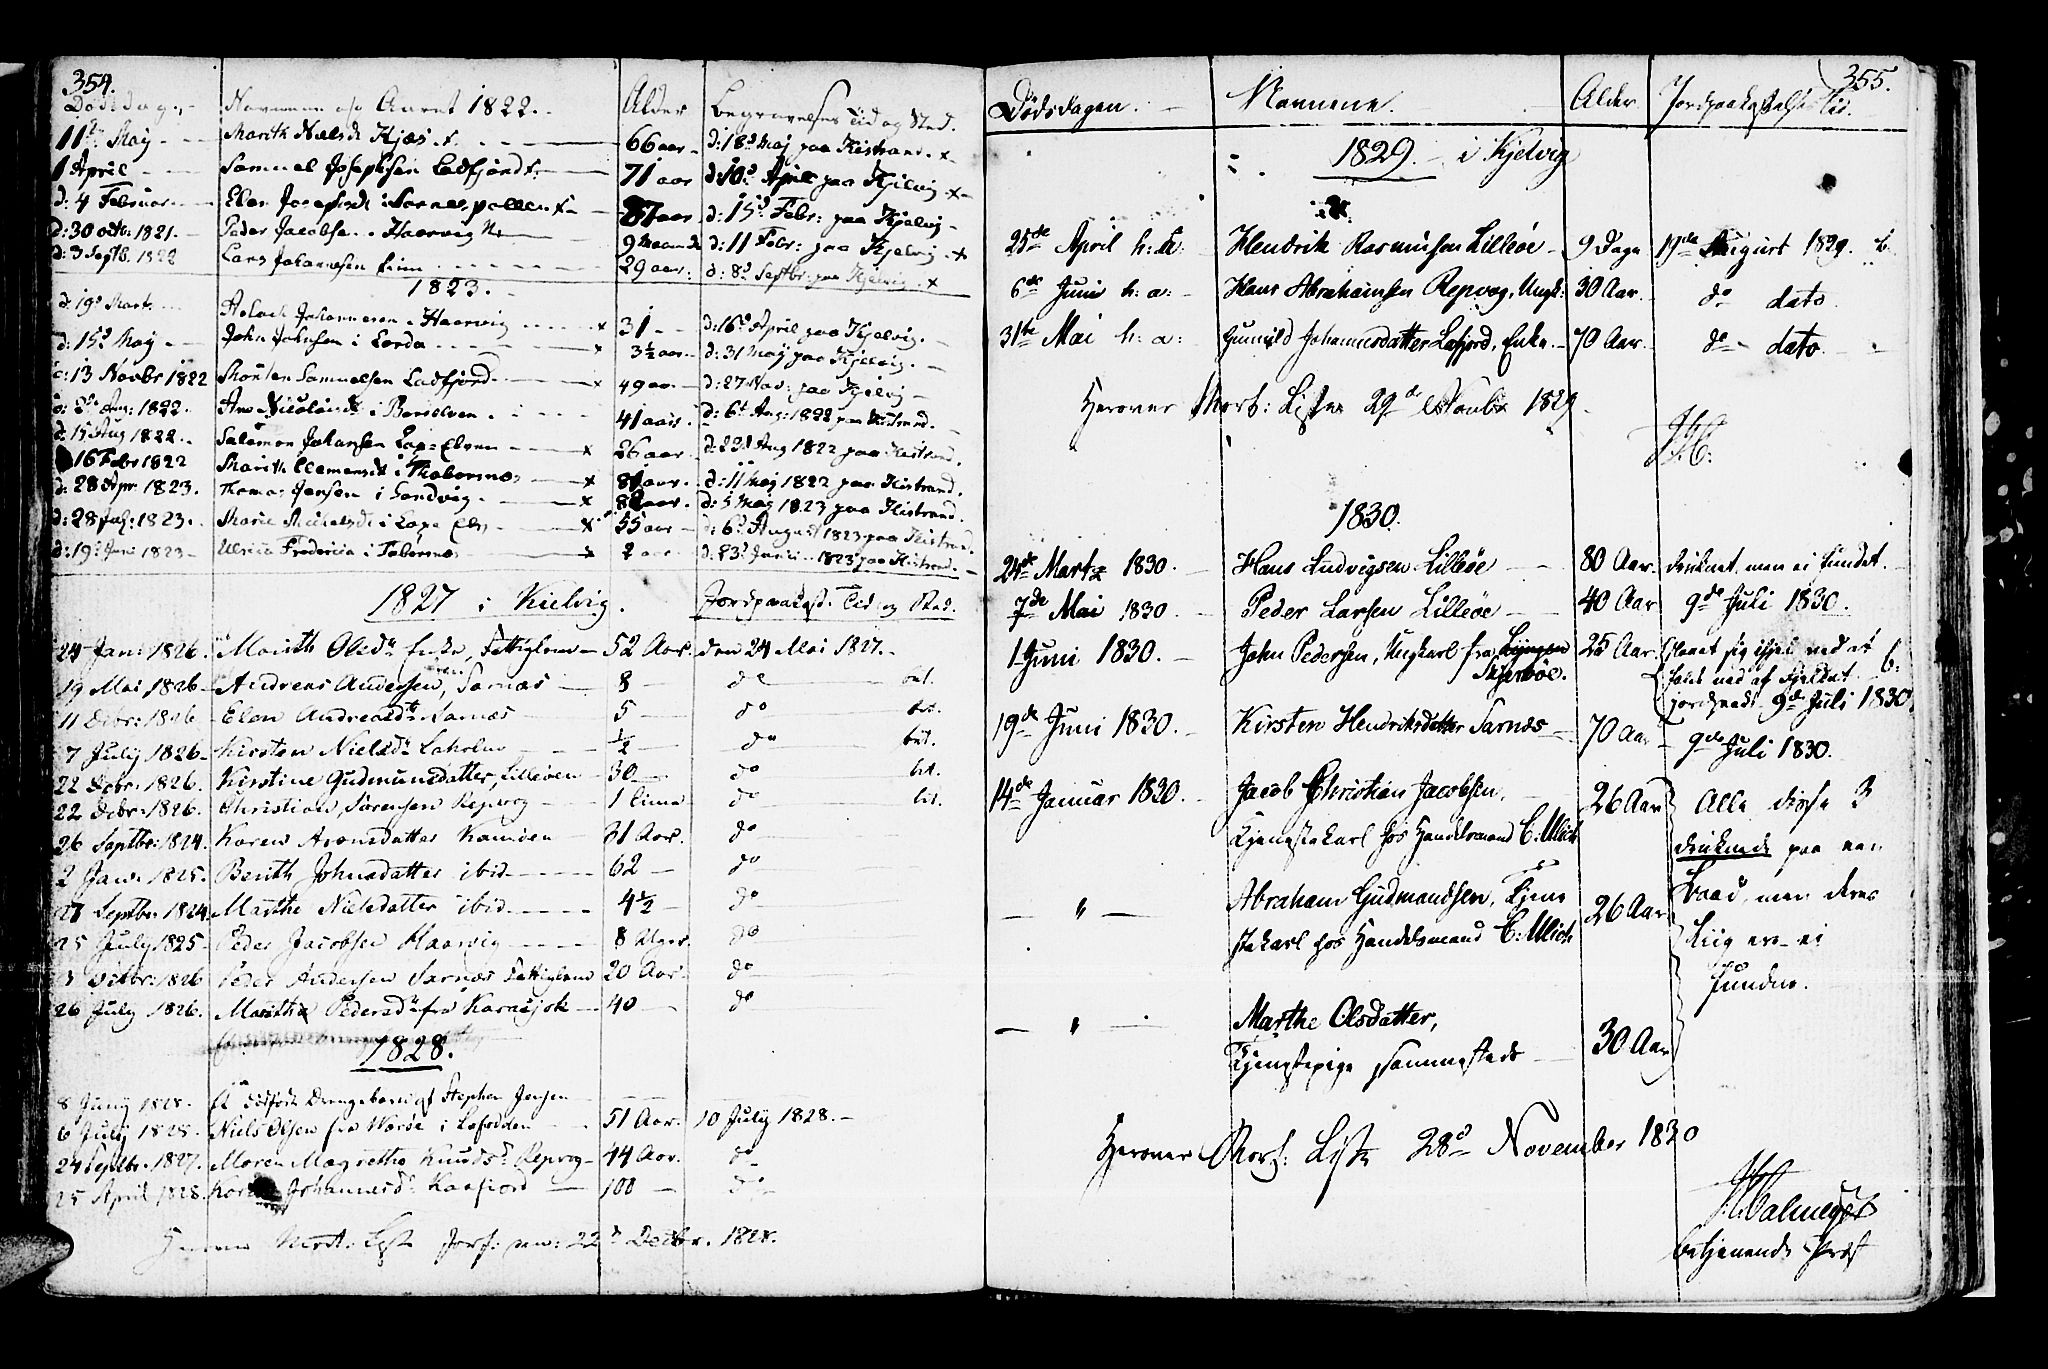 354.
Dødsdag. Navnene og Aaret 1822. Alder Begravelses Tid og Sted.
11te Maj Marith Nielsd Kjæs x 66 aar d: 18d Maj paa Kistrand x
1 April Samuel Josephsen Ladfjord x 71 aar d: 10d April paa Kjelvig x
d: 4 Februar Elen Josephsd i Sarnespollen x 87 aar d: 15d Febr: paa Kjelvig
d: 30 octb: 1821. Peder Jacobsen Haarvig 9 Maaneder d: 11 Febr: paa Kjelvig x
d: 3 Septb. 1822 Lars Johannesen Finn 29 aar: d: 8d Septbr: paa Kjelvig x
1823.
d: 19d Marts Johannesen Haarvig x 31 d: 16d April paa Kjelvig.
d: 15d Maj John Johnsen i Lorda x 3½ aar d: 31 Maj paa Kjelvig.
d: 13 Novbr 1822 Morten Samuelsen Ladfjord x 49 aar d: 27 Nov: paa Kjelvig
d: Aug: 1822. Ane Nicolaisd i Børselven 41 aar d: 6t Aug: 1822 paa Kistrand.
d: 15 Aug 1822. Salamon Johansen Laxe Elven x 26 aar d: 23d Aug 1822 paa Kistrand.
16 Febr 1822 Marith Clemensd i Thobornæs x 81 aar. d: 11 Maj 1822 paa Kistrand.
d: 28 Apr 1823. Thomas Jensen i Sandvig x 82 aar. d: 5 Maj 1823 paa Kistrand.
d: 28 Jul: 1823. Marie Michelsd i Laxe Elv x 55 aar d: 6d August 1823 paa Kistrand.
d: 19d Juni 1823 Ulricia Fredericia i Tobornæs x 2 aar d: 23d Junii 1823 paa Kistrand.
1827 i Kielvig. Jordpaakast. Tid og Sted.
24 Jan: 1826. Marith Olsdr Enke, Fattiglem 52 Aar. den 24 Mai 1827.
19 Mai 1826 Andreas Andersen, Sarnæs 8 do bet.
11 Debr: 1826 Elen Andreasdr Sarnæs 5 do bet.
7 July 1826 Kirsten Nielsdr Laholm ½ do bet.
22 Debr. 1826. Kirstine Gudmundsdatter, Lilleøen 30 do bet.
22 Debr: 1826. Christian Sørensen Repvog 1 time do bet.
26 Septbr: 1824. Karen Aronsdatter Kamøen 31 Aar. do
2 Jan: 1825. Berith Johnsdatter ibid 62 do
27 Septbr: 1824 Marthe Nielsdatter ibid 4½ do
25 July 1825 Peder Jacobsen Haarvig 8 Uger. do
Decbr: 1826 Peder Andersen Sarnæs Fattiglem 20 Aar. do
26 July 1826. Marthe Pedersdr fra Karasjok 40 do
1828.
8 Juny 1828. Et dødfødt Drengebarn af Stephen Jensen
6 July 1828. Niels Olsen fra Værøe i Lofodden 51 Aar. 10 July 1828.
24 Septbr. 1827. Maren Magrethe Knudsd. Repvog 44 Aar. do
25 April 1828. Karen Johannesd. Kaafiord 100 do
Herover Mort: Liste den: 22d Decbr. 1828.
355.
Dødsdagen. Navnene. Alder. Jordpaakastelses Tid.
1829. i Kjelvig
25de April h: a: Hendrik Rasmusen Lilleøe 9 Dage 19de August 1829. b.
6de Juni h: a: Hans Abrahamsen Repvog, Ungk: 30 Aar. do dato
31te Mai h: a: Gunnild Johannesdatter Lafjord, Enke. 70 Aar. do dato
Herover Mort: Liste 29de Novbr 1829.
1830.
24de Marts 1830. Hans Ludvigsen Lilleøe 80 Aar. druknet men ei fundet.
7de Mai 1830. Peder Larsen Lilleøe 40 Aar 9de Juli 1830.
1 Juni 1830. John Pedersen, Ungkarl fra Lyngen 25 Aar. slaaet sig ihjel ved at
Skjervøe. falde ned af Fjeldet. b:
jordpaak. 9de Juli 1830
19de Juni 1830. Kirsten Hendriksdatter Sarnæs 70 Aar 9de Juli 1830.
14de Januar 1830. Jacob Christian Jacobsen, 26 Aar Alle disse 3
Tjenestekarl hos Handelsmand C: Ulich druknede paa een
" Abraham Gudmandsen, Tjene 26 Aar Baad, men deres
stekarl hos Handelsmand C: Ulich Liig ere ei
fundne.
" Marthe Olsdatter, 30 Aar
Tjenestepige sammesteds
Herover Mort: Liste 28d November 1830
betjenende Præst